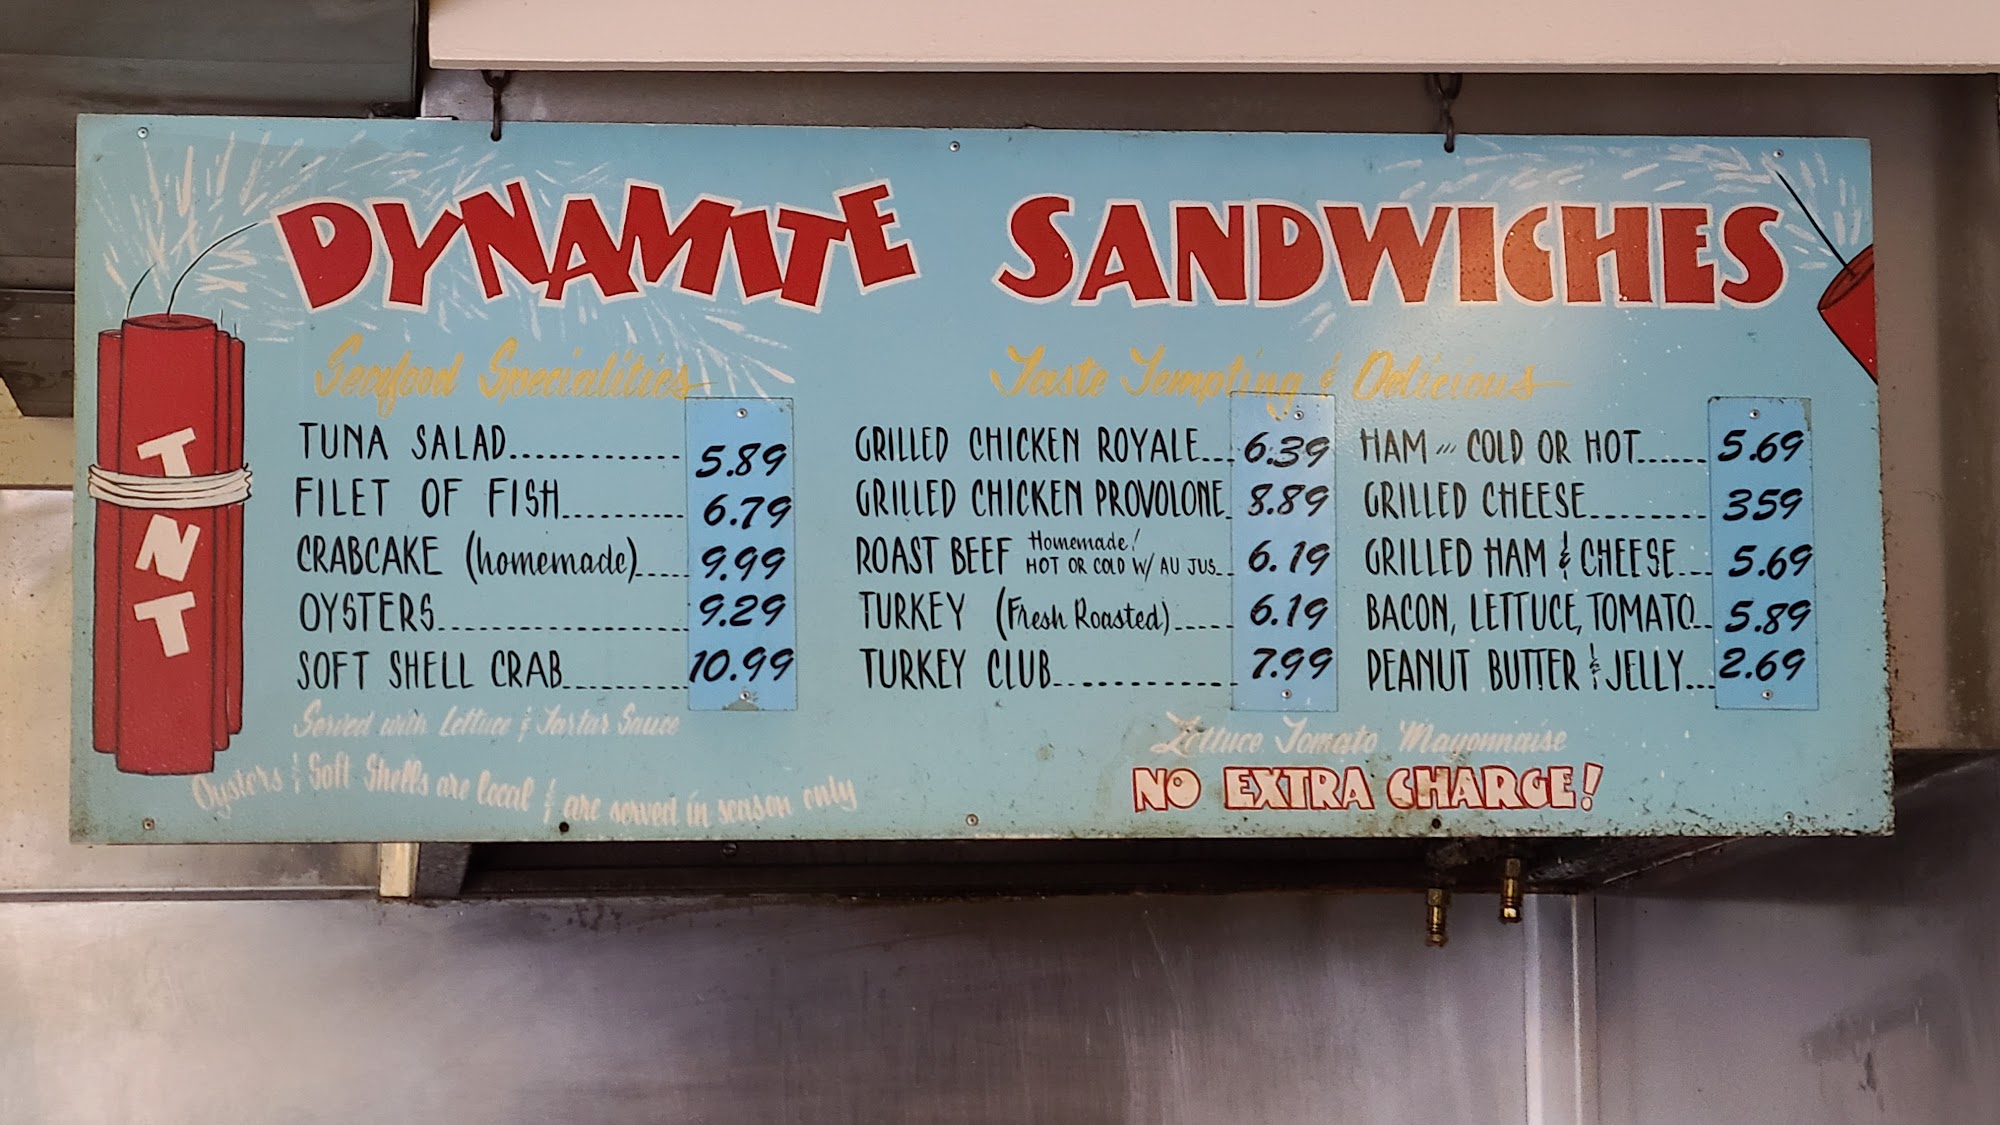 DYNAMITE SANDWICHES
TNT
Seafood Specialities
TUNA SALAD 5.89
FILET OF FISH 6.79
CRABCAKE (homemade) 9.99
OYSTERS 9.29
SOFT SHELL CRAB 10.99
Served with Lettuce & Tartar Sauce
Oysters & Soft Shells are local & are served in season only
Taste Tempting & Delicious
GRILLED CHICKEN ROYALE 6.39
GRILLED CHICKEN PROVOLONE 8.89
ROAST BEEF Homemade! HOT OR COLD W/ AU JUS 6.19
TURKEY (Fresh Roasted) 6.19
TURKEY CLUB 7.99
HAM COLD OR HOT 5.69
GRILLED CHEESE 359
GRILLED HAM & CHEESE 5.69
BACON, LETTUCE, TOMATO 5.89
PEANUT BUTTER & JELLY 2.69
Lettuce, Tomato, Mayonnaise
NO EXTRA CHARGE!